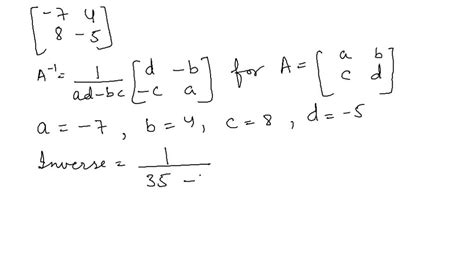 [ -7 4
8 -5 ]
A⁻¹ = 1/(ad-bc) [ d -b
-c a ] for A = [ a b
c d ]
a = -7 , b = 4, c = 8 , d = -5
Inverse = 1/(35 -